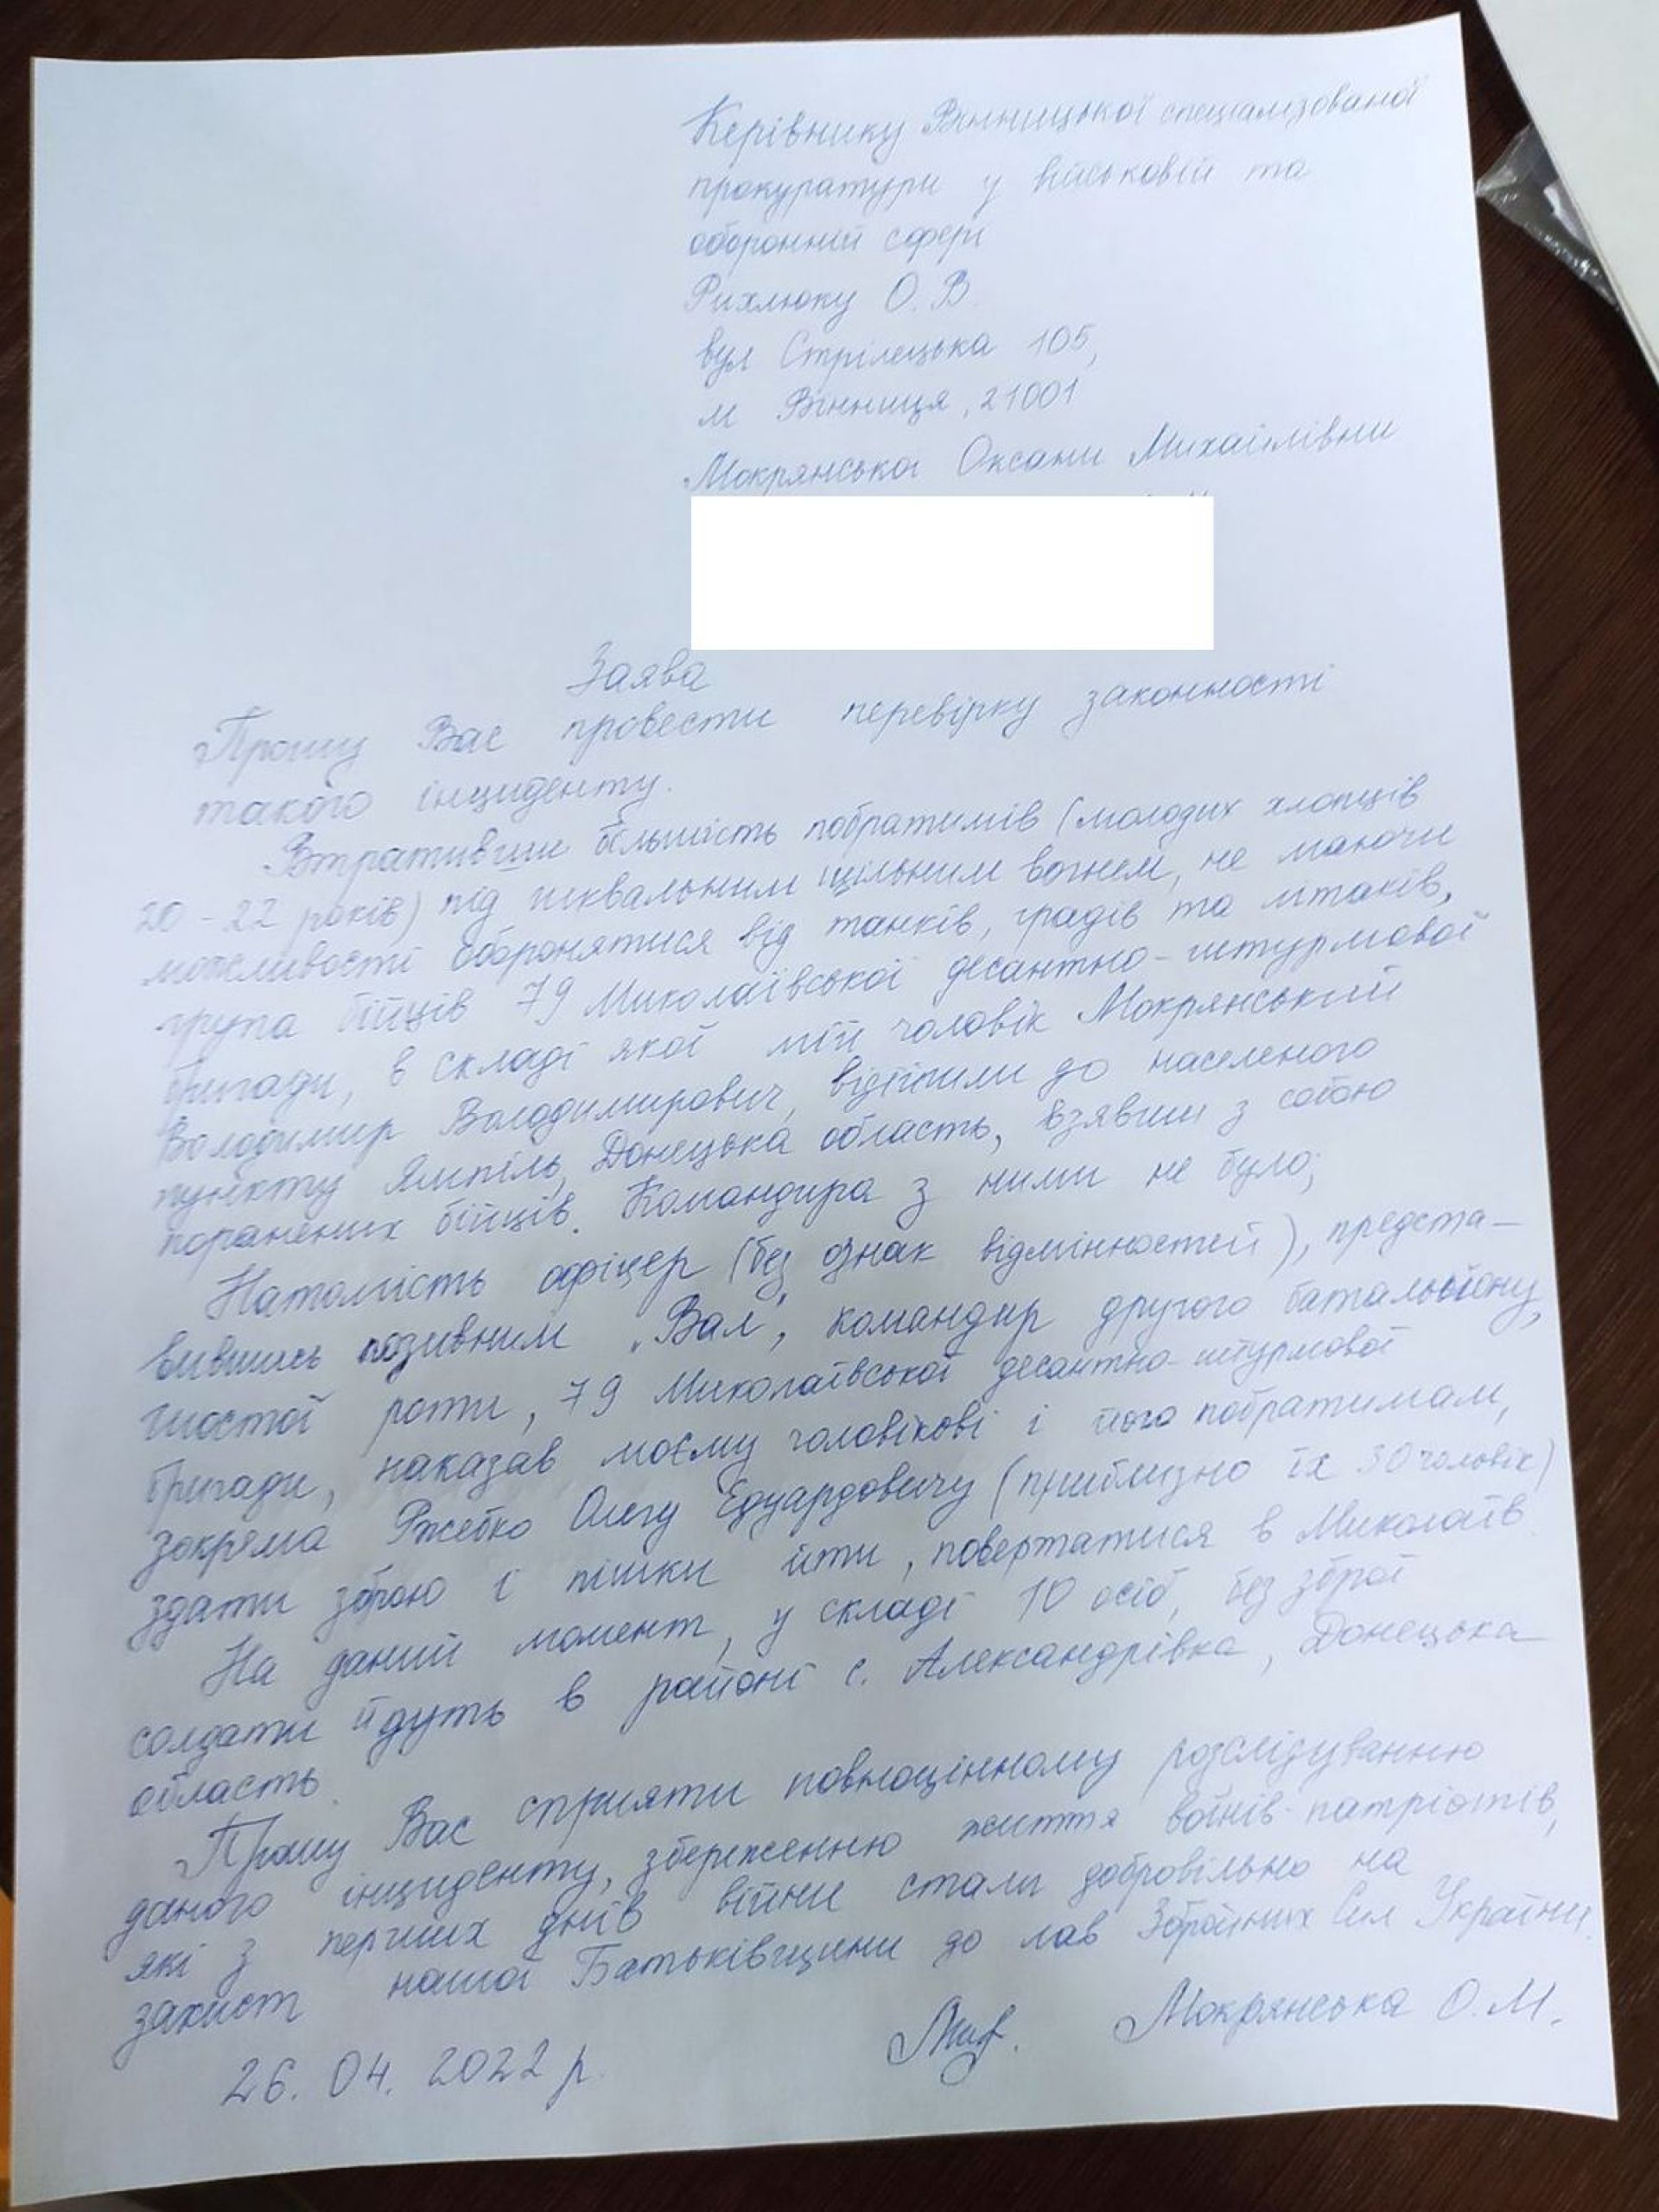 Керівнику Вінницької спеціалізованої
прокуратури у військовій та
оборонній сфері
Рихлюку О.В.
вул Стрілецька 105,
м Вінниця, 21001
Мокрянської Оксани Михайлівни
Заява
Прошу Вас провести перевірку законності
такого інциденту.
Втративши більшість побратимів (молодих хлопців
20-22 років) під шквальним щільним вогнем, не маючи
можливості оборонятися від танків, градів та літаків,
група бійців 79 Миколаївської десантно-штурмової
бригади, в складі якої мій чоловік Мокрянський
Володимир Володимирович, відійшли до населеного
пункту Ямпіль, Донецька область, взявши з собою
поранених бійців. Командира з ними не було;
Натомість офіцер (без ознак відмінностей), предста-
вившись позивним „Вал", командир другого батальйону,
шостої роти, 79 Миколаївської десантно-штурмової
бригади, наказав моєму чоловікові і його побратимам,
зокрема Ржебко Олегу Едуардовичу (приблизно їх 30 чоловік)
здати зброю і пішки йти, повертатися в Миколаїв.
На даний момент, у складі 10 осіб, без зброї
солдати йдуть в районі с. Александрівка, Донецька
область.
Прошу Вас сприяти повноцінному розслідуванню
даного інциденту, збереженню життя воїнів-патріотів,
які з перших днів війни стали добровільно на
захист нашої Батьківщини до лав Збройних Сил України.
26.04.2022 р. Мокрянська О.М.